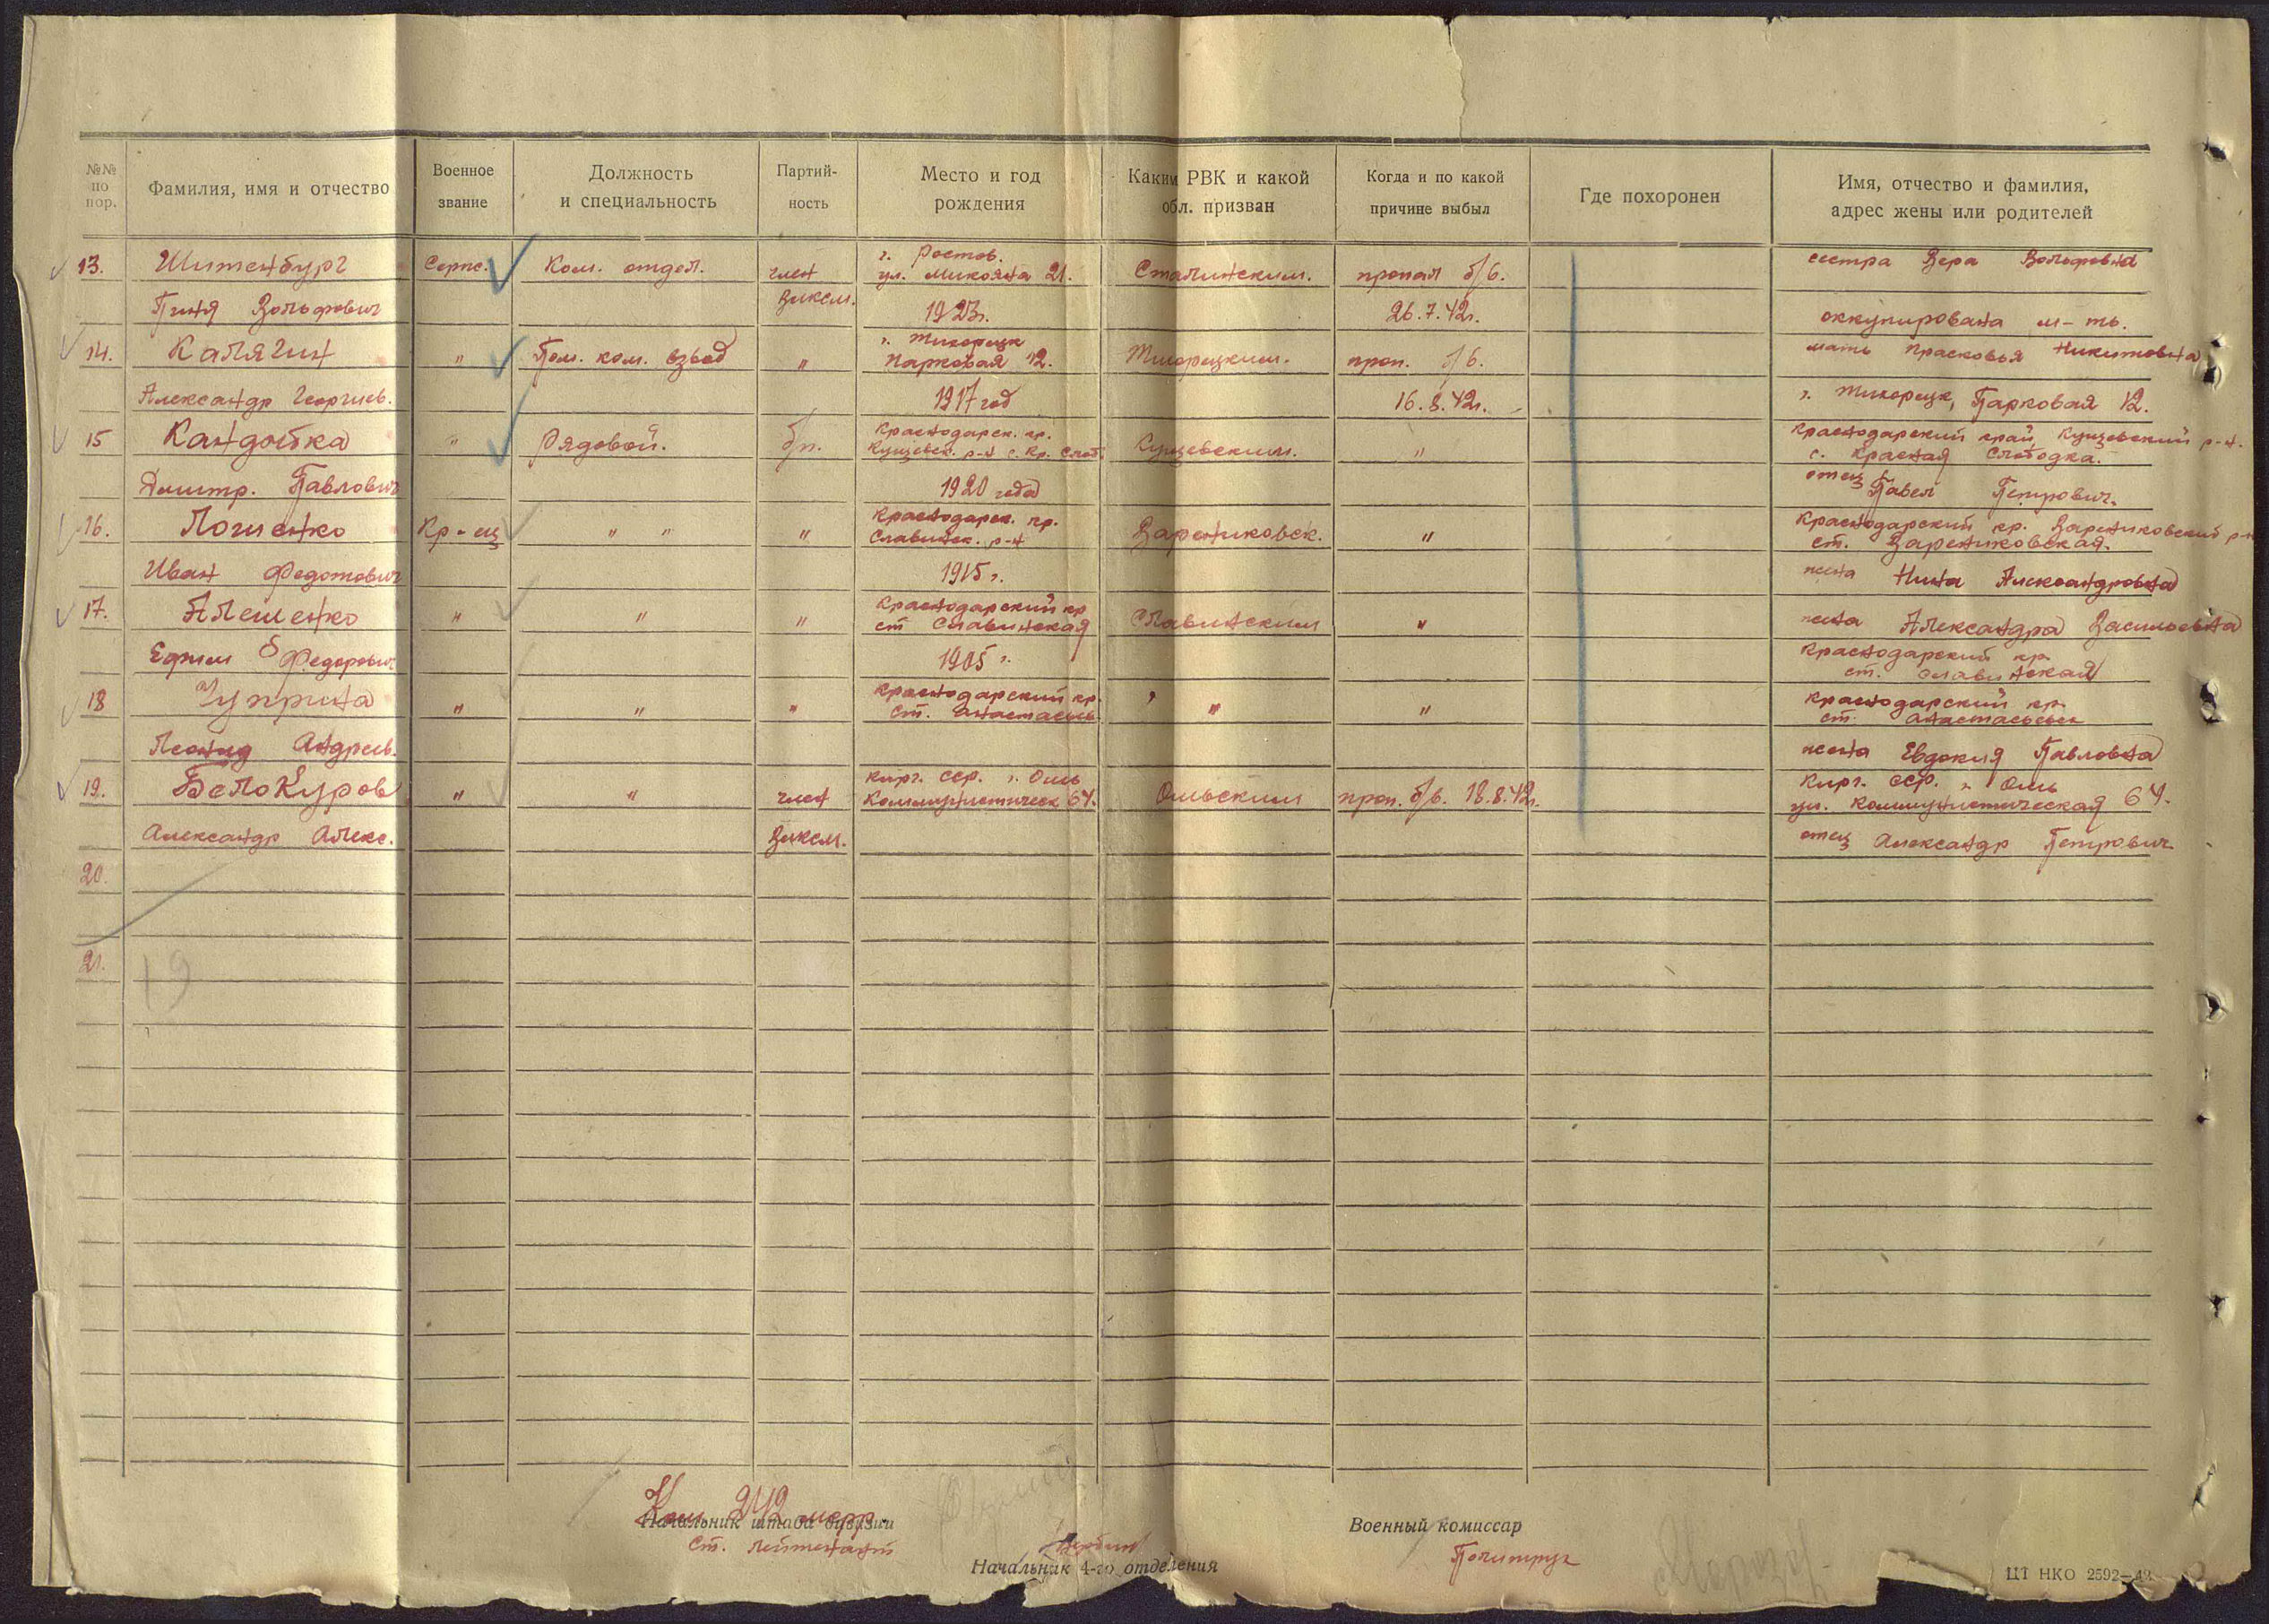 №№ по пор.
Фамилия, имя и отчество
Военное звание
Должность и специальность
Партий-ность
Место и год рождения
Каким РВК и какой обл. призван
Когда и по какой причине выбыл
Где похоронен
Имя, отчество и фамилия, адрес жены или родителей
13. Шитенбург Серж. Ком. отдел. член г. Ростов. ул. Микояна 21. Сталинским. пропал б/в. сестра Вера Вольфовна
Пиня Вольфович Влксм. 1923г. 26.7.42г. оккупирована м-ть.
14. Калягин " Пом. ком. взвод " г. Тихорецк Парковая 12. Тихорецким. проп. б/в. мать Прасковья Никитовна
Александр Георгиев. 1917 год 16.8.42г. г. Тихорецк, Парковая 12.
15 Кандыбка " Рядовой. б/п. Краснодарск. кр. Кущевск. р-н с. Кр. Слоб. Кущевским. " Краснодарский край, Кущевский р-н. с. Красная Слободка.
Дмитр. Павлович 1920 года отец Павел Петрович.
16. Логиенко Кр-ец " " " Краснодарск. кр. Славинск. р-н Варениковск. " Краснодарский кр. Варениковский р-н ст. Варениковская.
Иван Федотович 1915 г. жена Нина Александровна
17. Алешенко " " " Краснодарский кр ст Славинская Славинским " жена Александра Васильевна
Ефим Федорович 1905 г. Краснодарский кр. ст. Славинская
18 Чуприна " " " Краснодарский кр. ст. Анастасьев. " " Краснодарский кр. ст. Анастасьевск
Леонид Андреев. жена Евдокия Павловна
19. Белокуров " " член Кирг. сср. г. Ошь Коммунистическ 64. Ошьским проп. б/в. 18.8.42г. Кирг. сср. г. Ошь ул. Коммунистическая 64.
Александр Алекс. Влксм. отец Александр Петрович
20.
21. 19
Ком 242
Начальник штаба дивизии
Военный комиссар
Ст. лейтенант
Политрук
Начальник 4-го отделения
ЦТ НКО 2592—42